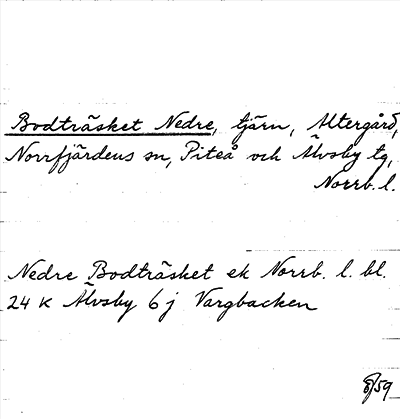 Bodträsket Nedre, tjärn, Altergård,
Norrfjärdens sn, Piteå och Älvsby tg,
Norrb. l.
Nedre Bodträsket ek Norrb. l. bl.
24 K Älvsby 6 j Vargbacken
/59